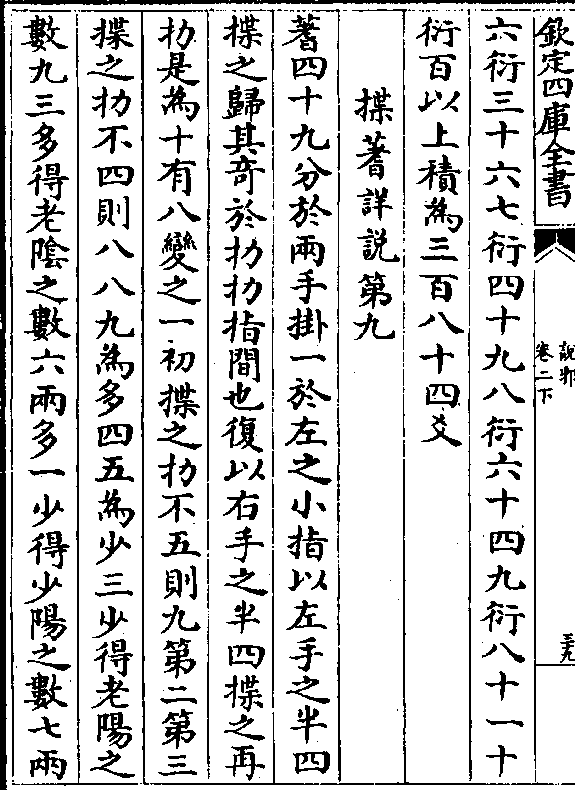 欽定四庫全書
說郛
卷二下
三九
六衍三十六七衍四十九八衍六十四九衍八十一十
衍百以上積為三百八十四爻
揲蓍詳説第九
蓍四十九分於兩手掛一於左之小指以左手之半四
揲之歸其奇於扐扐指間也復以右手之半四揲之再
扐是為十有八變之一初揲之扐不五則九第二第三
揲之扐不四則八八九為多四五為少三少得老陽之
數九三多得老陰之數六兩多一少得少陽之數七兩